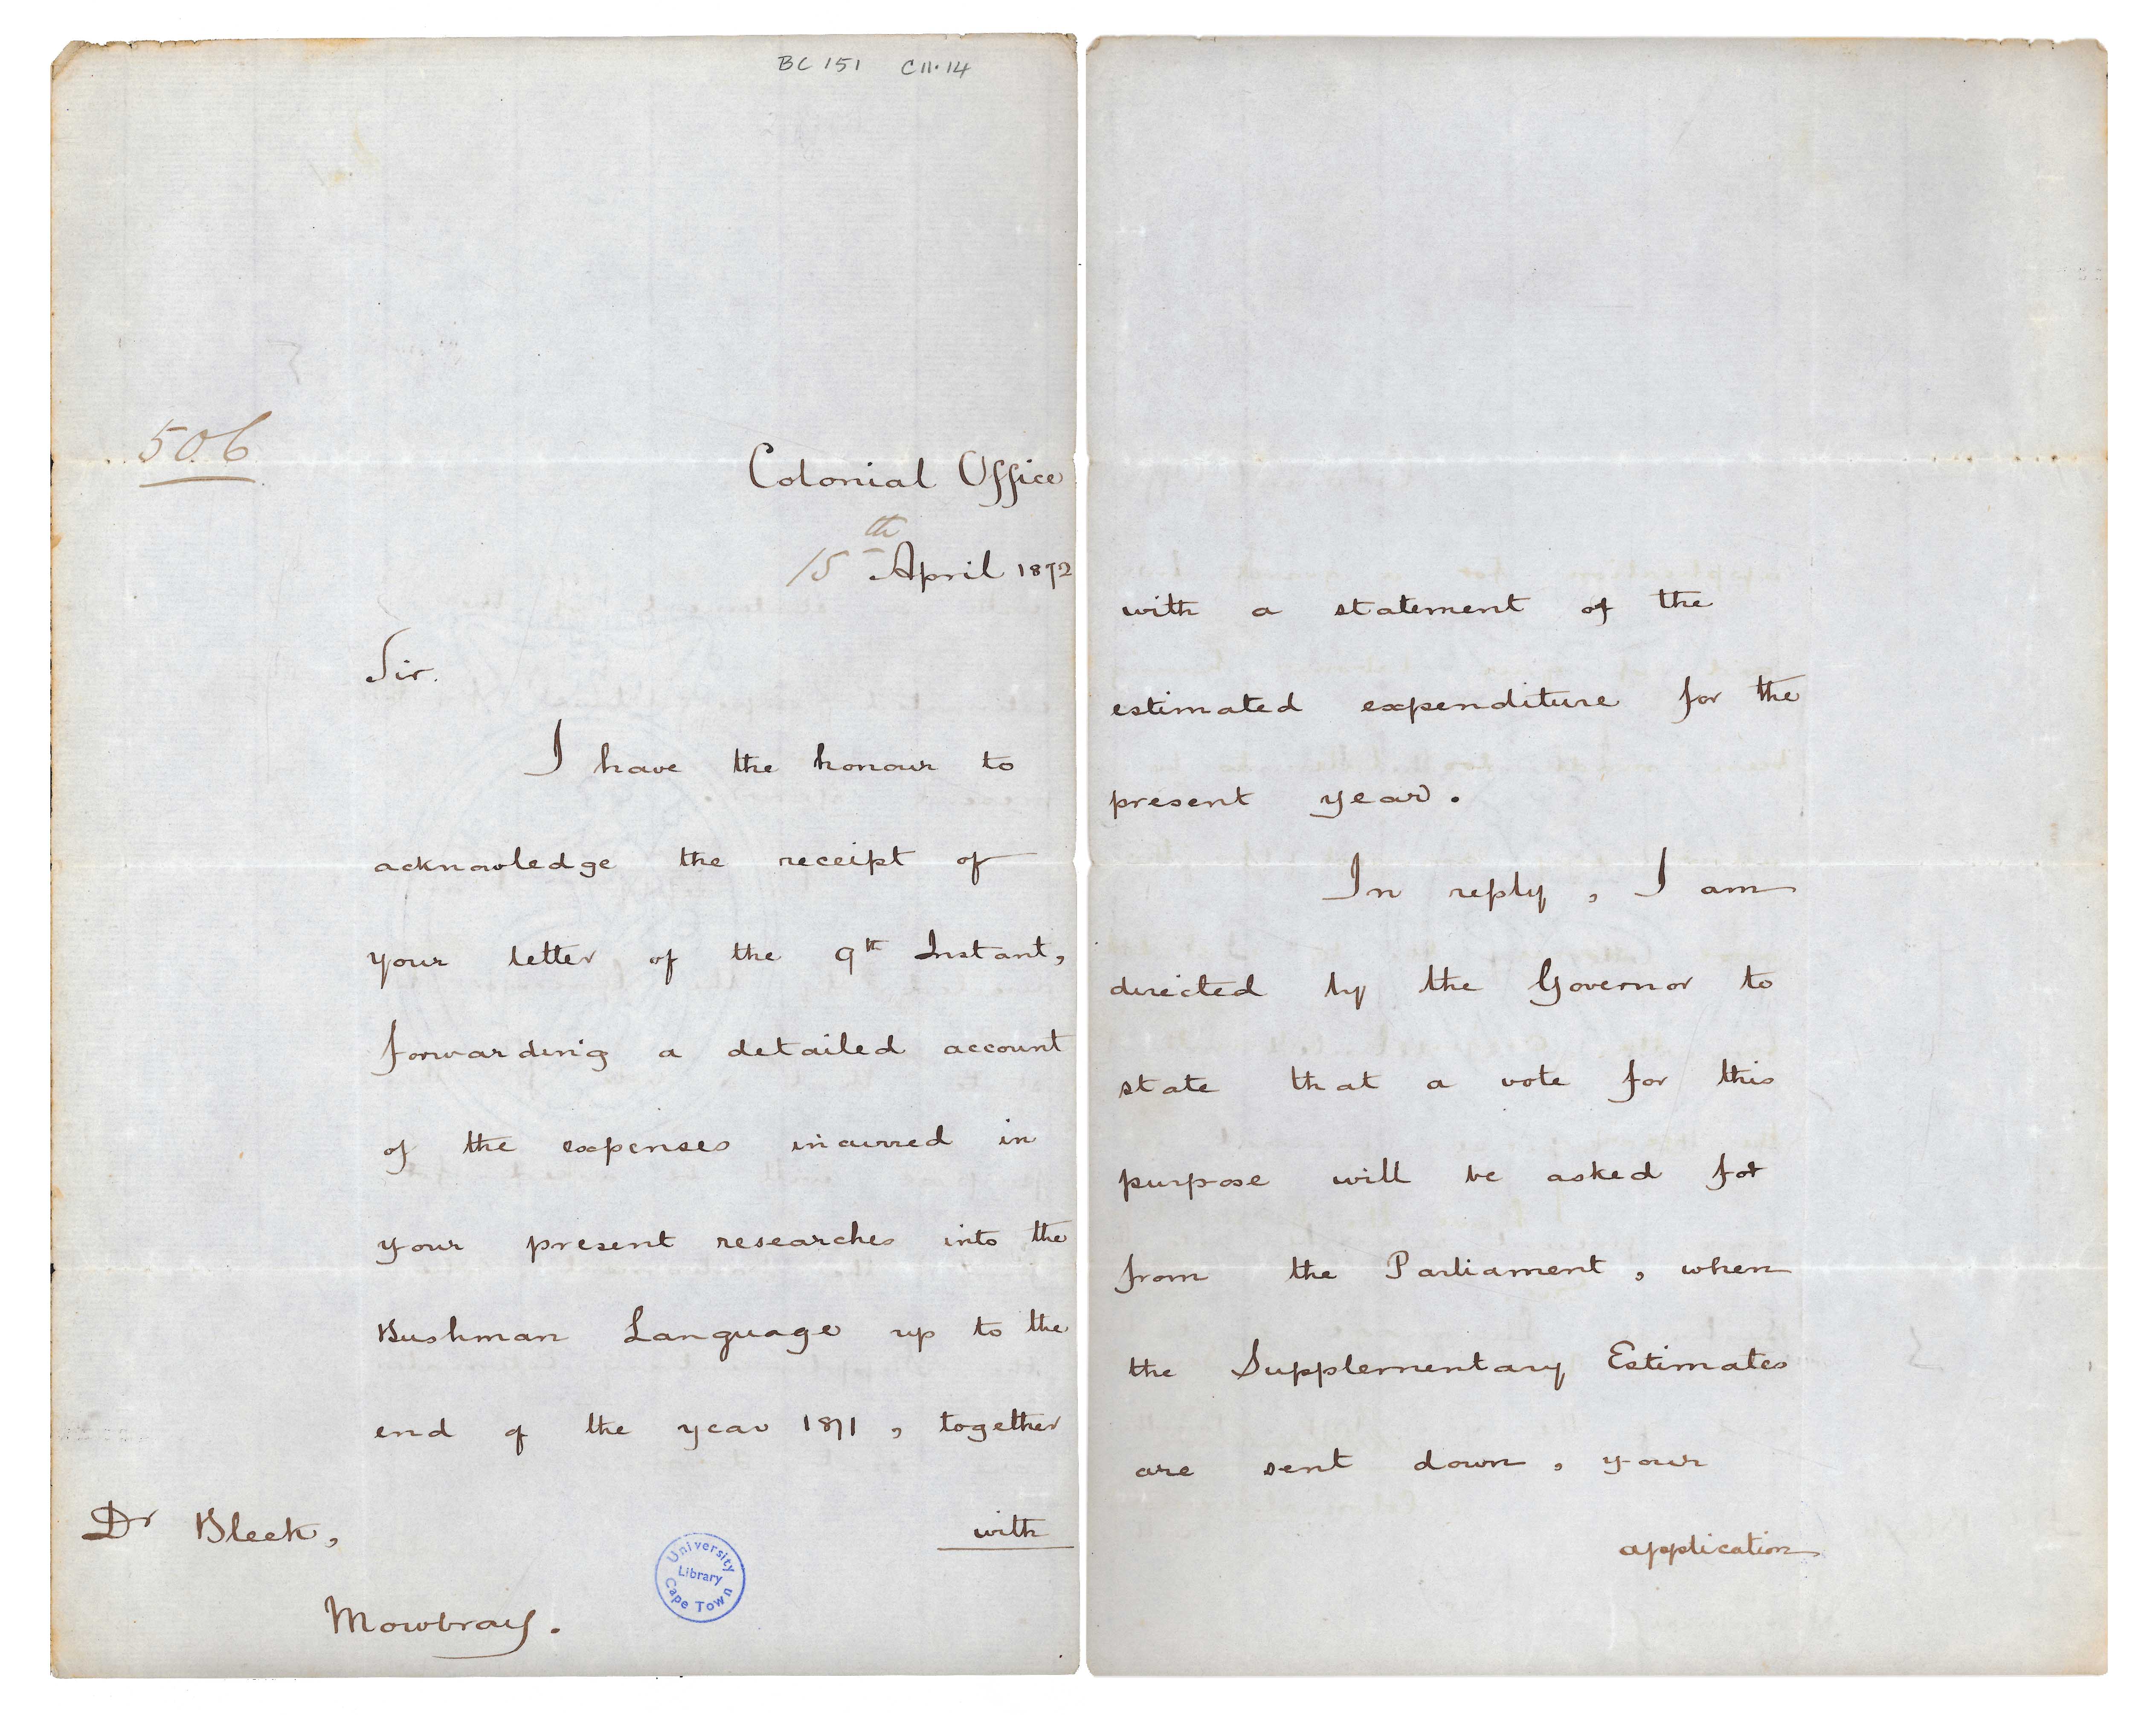 BC 151 C11.14
506
Colonial Office
15th April 1872
Sir.
I have the honour to
acknowledge the receipt of
your letter of the 9th Instant,
forwarding a detailed account
of the expenses incurred in
your present researches into the
Bushman Language up to the
end of the year 1871, together
with
Dr Bleek,
Mowbray.
University Library Cape Town
with a statement of the
estimated expenditure for the
present year.
In reply, I am
directed by the Governor to
state that a vote for this
purpose will be asked for
from the Parliament, when
the Supplementary Estimates
are sent down, your
application